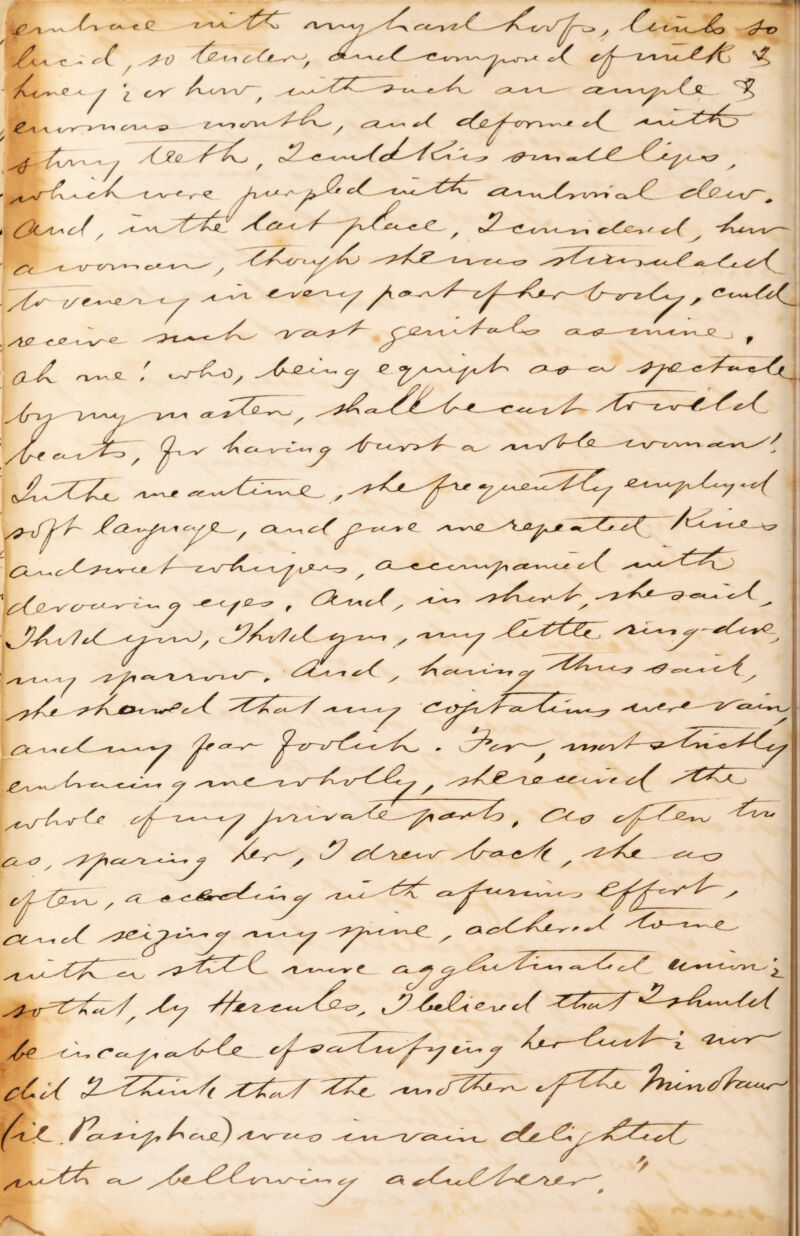 embrace with my hard hoofs, limbs so
lucid, so tender, and composed of milk &
honey; or how, with such an ample &
enormous mouth, and deformed with
stony teeth, I could kiss small lips,
which were purpled with ambrosial dew.
And, in the last place, I considered, how
a woman, though she was stimulated
to venery in every part of her body, could
receive such vast genitals as mine.
Ah me! who, being equipt as a spectacle
by my master, shall be cast to wild
beasts, for having burst a noble woman!
In the meantime, she frequently employed
soft language, and gave me repeated kisses
and sweet whispers, accompanied with
devouring eyes. And, in short, she said,
I hold you, I hold you, my little ring-dove,
my sparrow. And, having thus said,
she showed that my cogitations were vain,
and my fear foolish. For, most strictly
embracing me wholly, she received the
whole of my private parts. As often too
as, sparing her, I drew back, she as
often, acceding with a furious effort,
and seizing my spine, adhered to me
with a still more agglutinated union;
so that, by Hercules, I believed that I should
be incapable of satisfying her lust; nor
did I think that the mother of the Minotaur
(ie. Pasiphae) was in vain delighted
with a bellowing adulterer."